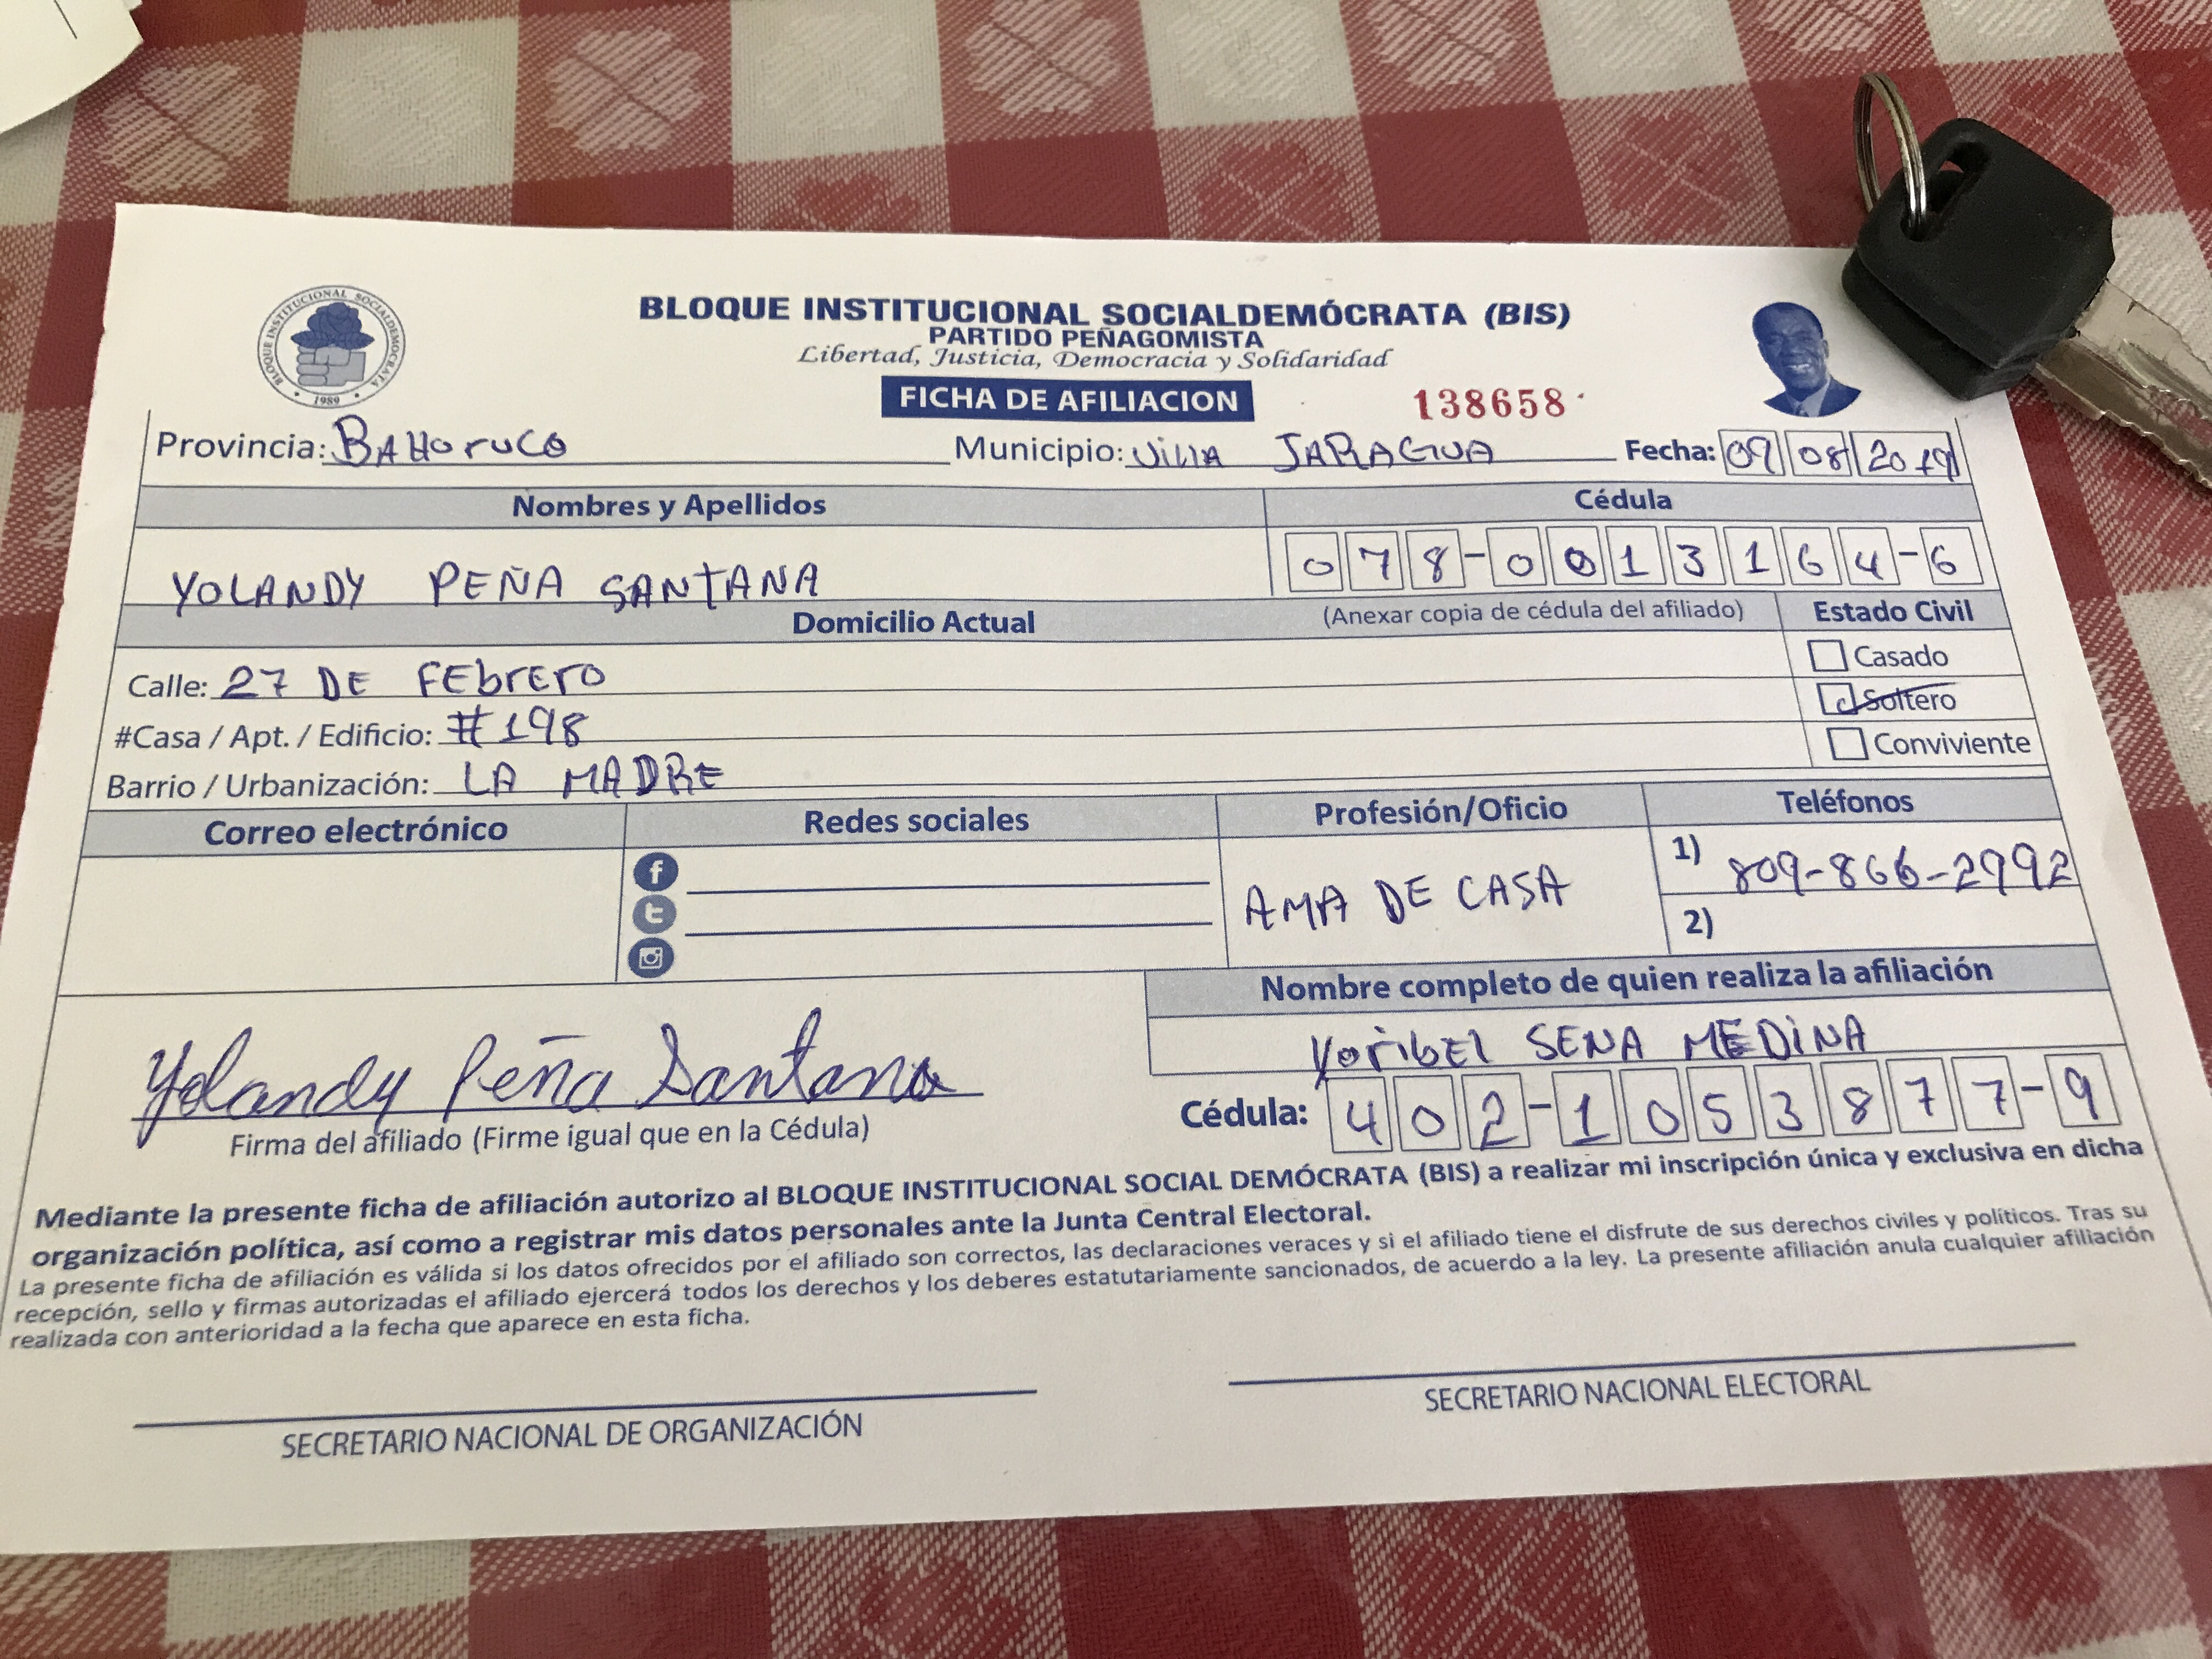 BLOQUE INSTITUCIONAL SOCIALDEMÓCRATA
1989
BLOQUE INSTITUCIONAL SOCIALDEMÓCRATA (BIS)
PARTIDO PEÑAGOMISTA
Libertad, Justicia, Democracia y Solidaridad
FICHA DE AFILIACION 138658
Provincia: BAHoruco Municipio: Villa JARAGUA Fecha: 09 08 2019
Nombres y Apellidos Cédula
YOLANDY PEÑA SANTANA 078-0013164-6
Domicilio Actual (Anexar copia de cédula del afiliado) Estado Civil
Calle: 27 DE FEbrEro Casado
#Casa / Apt. / Edificio: #198 Soltero
Barrio / Urbanización: LA MADRE Conviviente
Correo electrónico Redes sociales Profesión/Oficio Teléfonos
f AMA DE CASA 1) 809-866-2992
t 2)
Nombre completo de quien realiza la afiliación
Yoribel SENA MEDiNA
Yolandy Peña Santana Cédula: 402-1053877-9
Firma del afiliado (Firme igual que en la Cédula)
Mediante la presente ficha de afiliación autorizo al BLOQUE INSTITUCIONAL SOCIAL DEMÓCRATA (BIS) a realizar mi inscripción única y exclusiva en dicha
organización política, así como a registrar mis datos personales ante la Junta Central Electoral.
La presente ficha de afiliación es válida si los datos ofrecidos por el afiliado son correctos, las declaraciones veraces y si el afiliado tiene el disfrute de sus derechos civiles y políticos. Tras su
recepción, sello y firmas autorizadas el afiliado ejercerá todos los derechos y los deberes estatutariamente sancionados, de acuerdo a la ley. La presente afiliación anula cualquier afiliación
realizada con anterioridad a la fecha que aparece en esta ficha.
SECRETARIO NACIONAL DE ORGANIZACIÓN SECRETARIO NACIONAL ELECTORAL